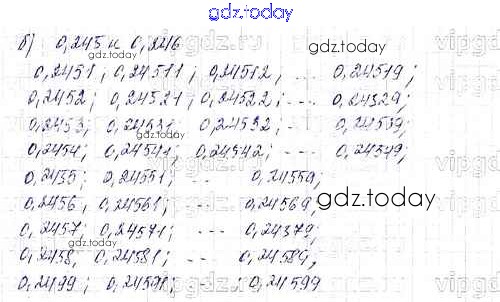 gdz.today
б) 0,245 и 0,246
gdz.today
0,2451; 0,24511; 0,24512; ... 0,24519;
0,2452; 0,24521; 0,24522; ... 0,24529;
0,2453; 0,24531; 0,24532; ... 0,24539;
gdz.today
0,2454; 0,24541; 0,24542; ... 0,24549;
0,2455; 0,24551; ... 0,24559;
gdz.today
0,2456, 0,24561; ... 0,24569;
0,2457; 0,24571; ... 0,24579;
gdz.today
0,2458, 0,24581; ... 0,24589;
0,2499; 0,24591; ... ; 0,24599